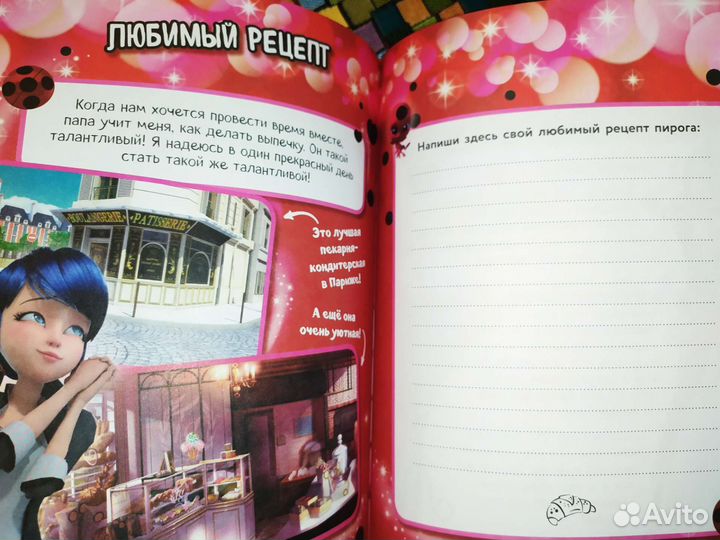 ЛЮБИМЫЙ РЕЦЕПТ
Когда нам хочется провести время вместе,
папа учит меня, как делать выпечку. Он такой
талантливый! Я надеюсь в один прекрасный день
стать такой же талантливой!
BOULANGERIE PATISSERIE
Это лучшая
пекарня-
кондитерская
в Париже!
А ещё она
очень уютная!
Напиши здесь свой любимый рецепт пирога:
Avito